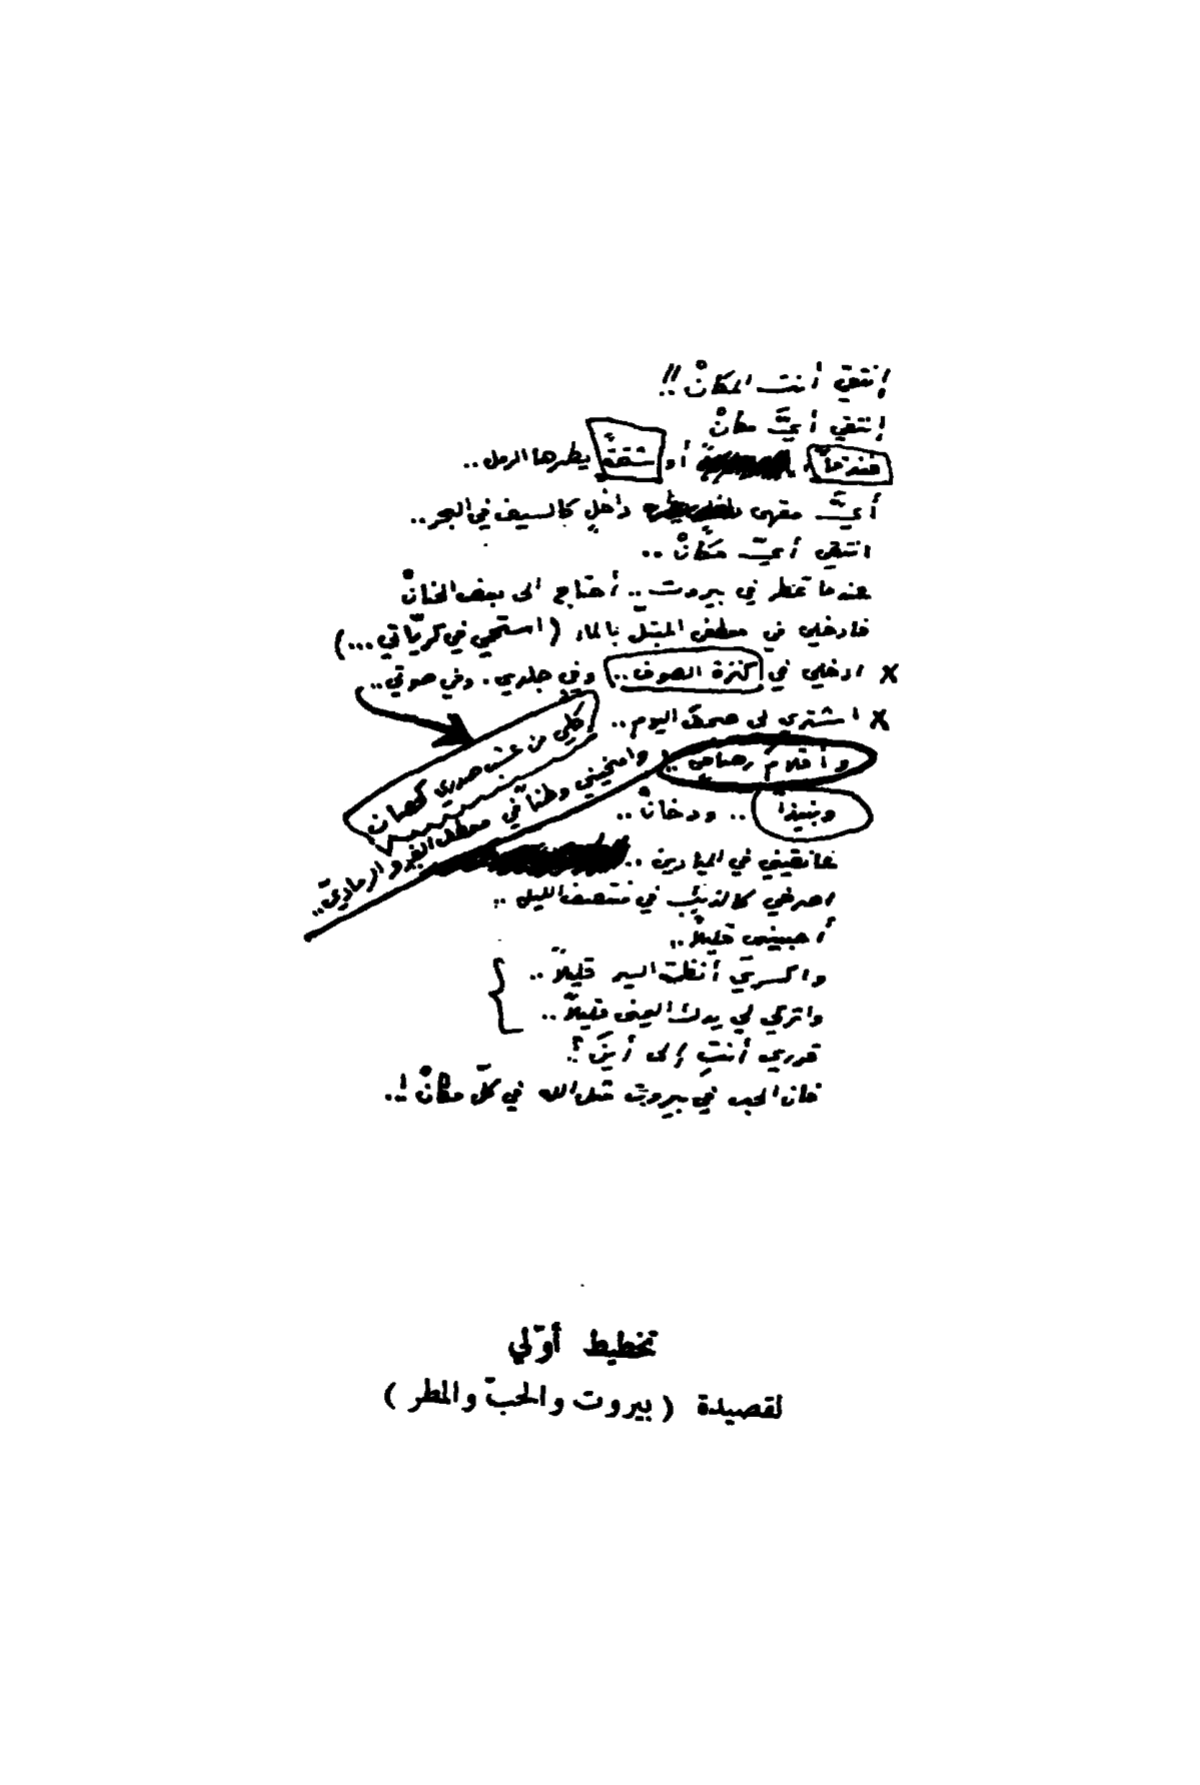 إنتقي أنت المكانْ!!..
إنتقي أيَّ مكانْ
فندقاً، أو شقةً يطمرها الرمل..
أيَّ مقهى داخلٍ كالسيف في البحر..
انتقي أيّ مكَانْ..
عندما تمطر في بيروت.. أحتاج الى بعض الحنانْ
فادخلي في معطفي المبتلّ بالماء (استحمي في كريّاتي...)
x ادخلي في كنزة الصوف.. وفي جلدي. وفي صوتي..
x اشتري لي صحفَ اليوم..
كلي من عشب صدري كحصان
وامنحيني وطناً في معطف الفرو الرماديّ..
وأقلامَ رصاصٍ..
ونبيذاً.. ودخانْ..
عانقيني في الميادين..
اصرخي كالذئب في منتصف الليل..
أحبيني قليلاً..
واكسري أنظمة السير قليلاً..
واتركي لي يدك اليمنى قليلاً..
قرري أنتِ إلى أينَ؟.
فان الحب في بيروت مثل الله في كلّ مكانْ!..
تخطيط أوّلي
لقصيدة (بيروت والحبّ والمطر)